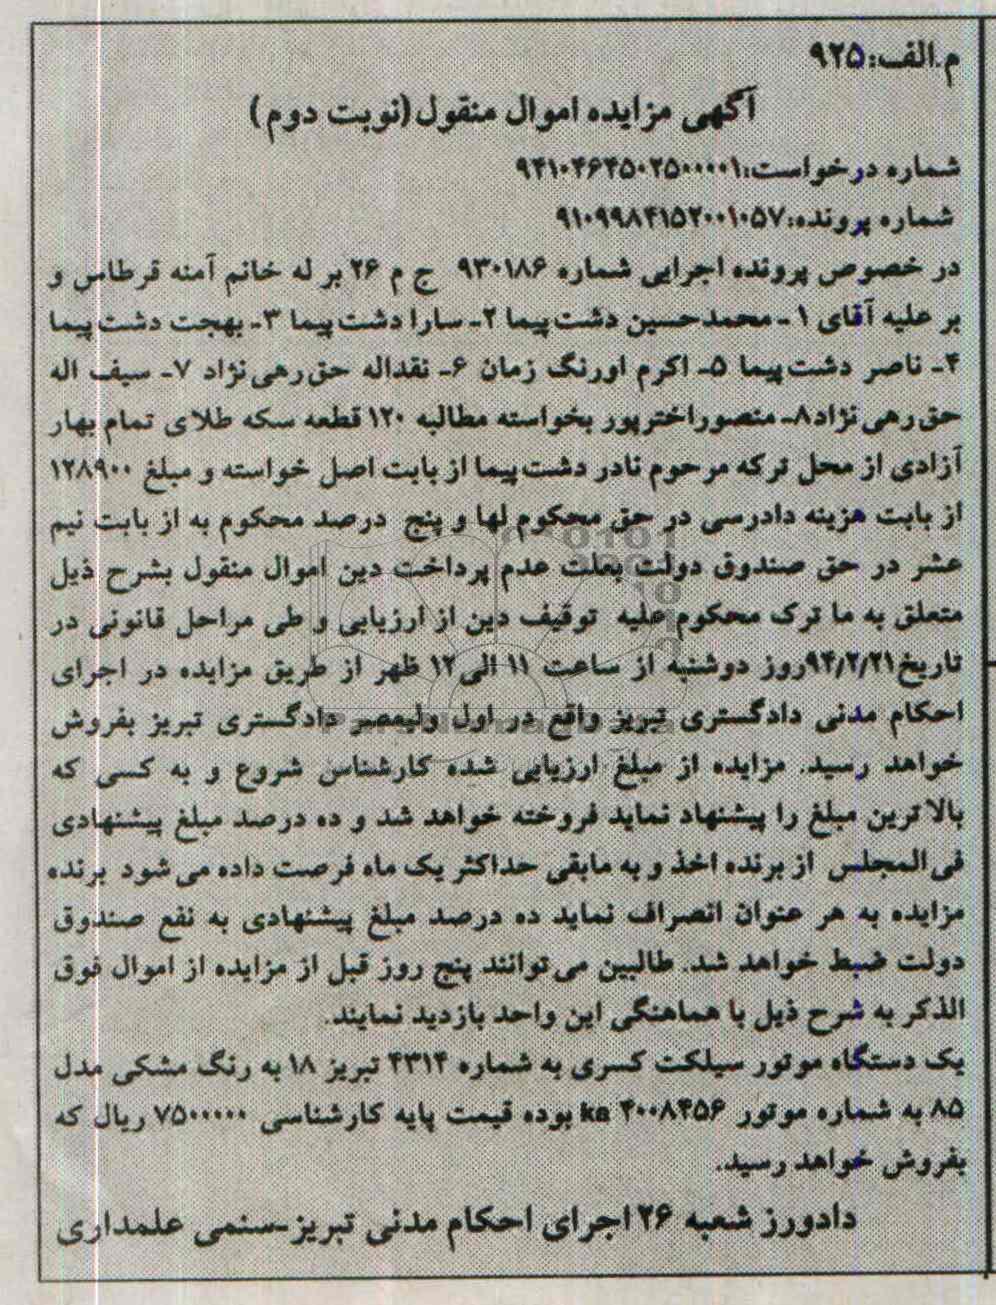 م.الف:۹۲۵
آگهی مزایده اموال منقول(نوبت دوم)
شماره درخواست:۹۴۱۰۴۶۴۵۰۲۵۰۰۰۰۱
شماره پرونده:۹۱۰۹۹۸۴۱۵۲۰۰۱۰۵۷
در خصوص پرونده اجرایی شماره ۹۳۰۱۸۶ ج م ۲۶ بر له خانم آمنه قرطاس و
بر علیه آقای ۱ - محمدحسین دشت‌پیما ۲- سارا دشت‌پیما ۳- بهجت دشت‌پیما
۴- ناصر دشت‌پیما ۵- اکرم اورنگ زمان ۶- نقداله حق‌رهی‌نژاد ۷- سیف اله
حق‌رهی‌نژاد۸- منصوراخترپور بخواسته مطالبه ۱۲۰ قطعه سکه طلای تمام بهار
آزادی از محل ترکه مرحوم نادر دشت‌پیما از بابت اصل خواسته و مبلغ ۱۲۸۹۰۰
از بابت هزینه دادرسی در حق محکوم لها و پنج درصد محکوم به از بابت نیم
عشر در حق صندوق دولت بعلت عدم پرداخت دین اموال منقول بشرح ذیل
متعلق به ما ترک محکوم علیه توقیف دین از ارزیابی و طی مراحل قانونی در
تاریخ۹۴/۲/۲۱روز دوشنبه از ساعت ۱۱ الی۱۲ ظهر از طریق مزایده در اجرای
احکام مدنی دادگستری تبریز واقع در اول ولیعصر دادگستری تبریز بفروش
خواهد رسید. مزایده از مبلغ ارزیابی شده کارشناس شروع و به کسی که
بالاترین مبلغ را پیشنهاد نماید فروخته خواهد شد و ده درصد مبلغ پیشنهادی
فی‌المجلس از برنده اخذ و به مابقی حداکثر یک ماه فرصت داده می شود برنده
مزایده به هر عنوان انصراف نماید ده درصد مبلغ پیشنهادی به نفع صندوق
دولت ضبط خواهد شد. طالبین می‌توانند پنج روز قبل از مزایده از اموال فوق
الذکر به شرح ذیل با هماهنگی این واحد بازدید نمایند.
یک دستگاه موتور سیلکت کسری به شماره ۴۳۱۴ تبریز ۱۸ به رنگ مشکی مدل
۸۵ به شماره موتور ka ۴۰۰۸۴۵۶ بوده قیمت پایه کارشناسی ۷۵۰۰۰۰۰ ریال که
بفروش خواهد رسید.
دادورز شعبه ۲۶ اجرای احکام مدنی تبریز-سنمی علمداری